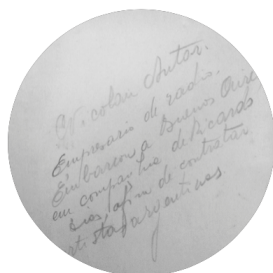 Nicolau Antar.
Empresario de radio.
Embarcou a Buenos Aires
em companhia de Ricardo
afim de contratar
artistas argentinos.